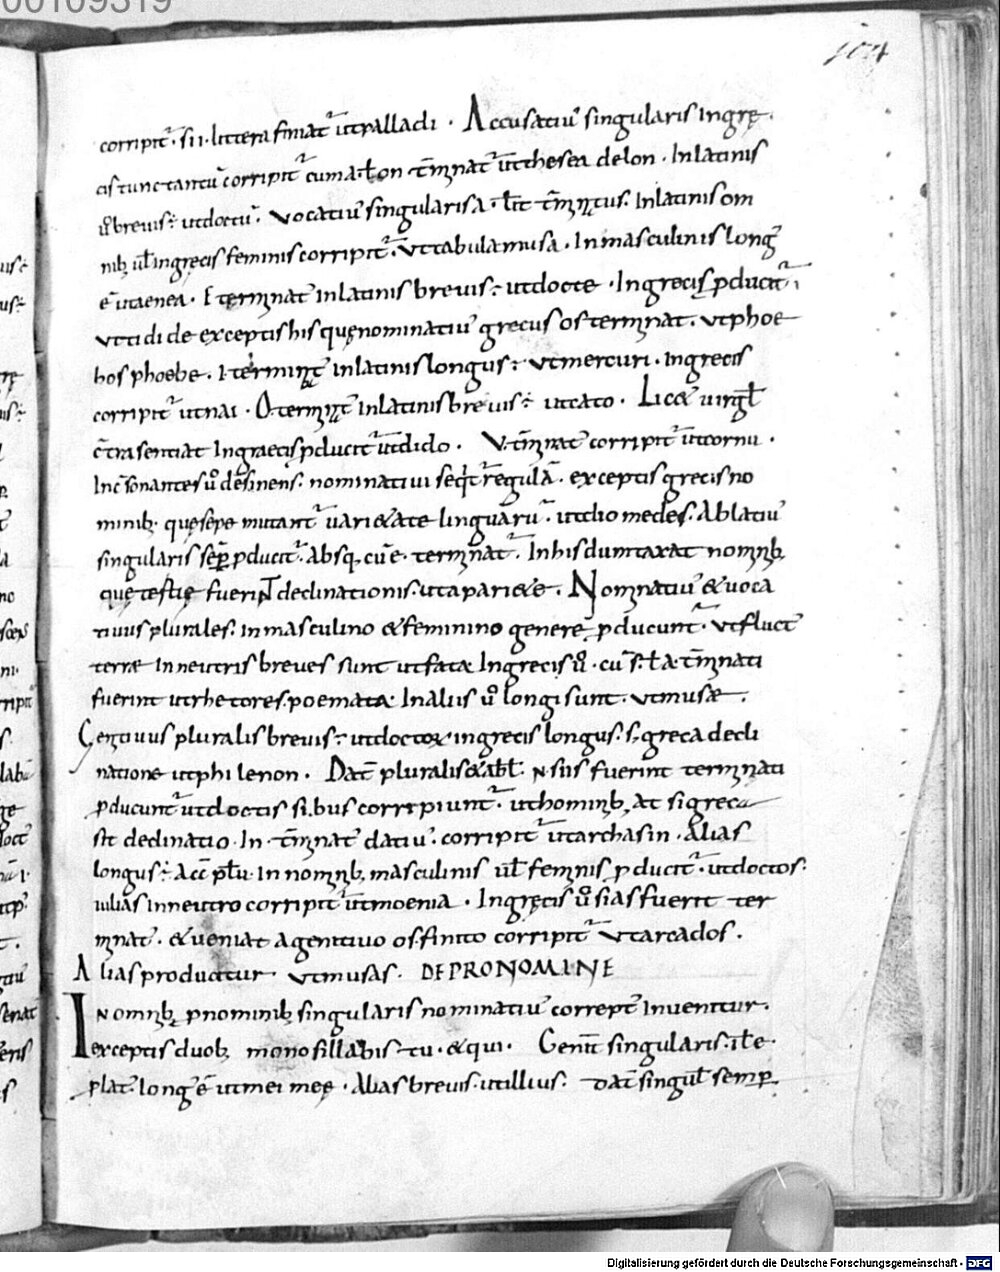 00109319
104
corripit᷑· si i· littera finiat᷑ ut palladi · Accusatiuꝰ singularis in grę
cis tunc tantū corripit᷑ cum a ł on t̄minat᷑ ut thesea delon · In latinis
ū breuis ÷ ut doctū· Vocatiuꝰ singularis a · łit t̄minatus· In latinis om
nibꝫ ul̄ in grecis feminis corripit᷑· Vt tabula musa · In masculinis long
ē ut aenea · E terminat᷑ in latinis breuis ÷ ut docte · In grecis ꝓducit᷑·
ut tidide exceptis his quę nominatiuꝰ grecus os terminat· ut phoe
bos phoebe · I terminat᷑ in latinis longus ÷ ut mercuri · In grecis
corripit᷑ ut nai · O terminat᷑ in latinis breuis ÷ ut cato · Licæ uirgł
c̄tra sentiat In graecis ꝓducit᷑ ut dido · V t̄minat᷑ corripit᷑ ut cornu ·
In c̄sonantes ū desinens· nominatiui seqt᷑ regulā · exceptis grecis no
minibꝫ· quę sepe mutant᷑ uarietate linguarū · ut diomedes· Ablatiuꝰ
singularis semꝑ ꝓducit᷑· Absq, cū e terminat᷑· In his dumtaxat nominibꝫ
que tertię fuerint declinationis· ut a pariete · Nominatiuꝰ & uoca
tiuus plurales· in masculino & feminino genere ꝓducunt᷑· ut fluct
terræ In neutris breues sunt ut fata In grecis ū · cū s· ł a t̄minati
fuerint ut rhetores· poemata· In aliis ū longi sunt· ut musæ·
Genitiuus pluralis breuis ÷ ut doctoꝝ in grecis longus· s· greca decli
natione ut philenon · Dat̄ pluralis & abł· N siis fuerint terminati
ꝓducunt᷑ ut doctis si· bus corripiunt᷑· ut hominibꝫ, at si greca
sit declinatio· In· t̄minat᷑ datiuꝰ· corripit᷑ ut archasin · Alias
longus ÷ Acc̄ płu· In nominibꝫ, masculinis ul̄ feminis ꝓducit᷑· ut doctos·
iulias in neutro corripit᷑ ut moenia · In gręcis ū si as fuerit ter
minat᷑· & ueniat a genitiuo os finito corripit᷑ ut arcados·
Alias producitur ut musas· DE PRONOMINE
In omnibꝫ pnominibꝫ singularis nominatiuꝰ correpte Inuenitur·
exceptis duobꝫ monosillabis tu· & qui· Genit̄ singularis· i ł e
plat· long ē ut mei meę · Alias breuis· ut illius· Dat̄ singuł semꝑ
Digitalisierung gefördert durch die Deutsche Forschungsgemeinschaft - DFG